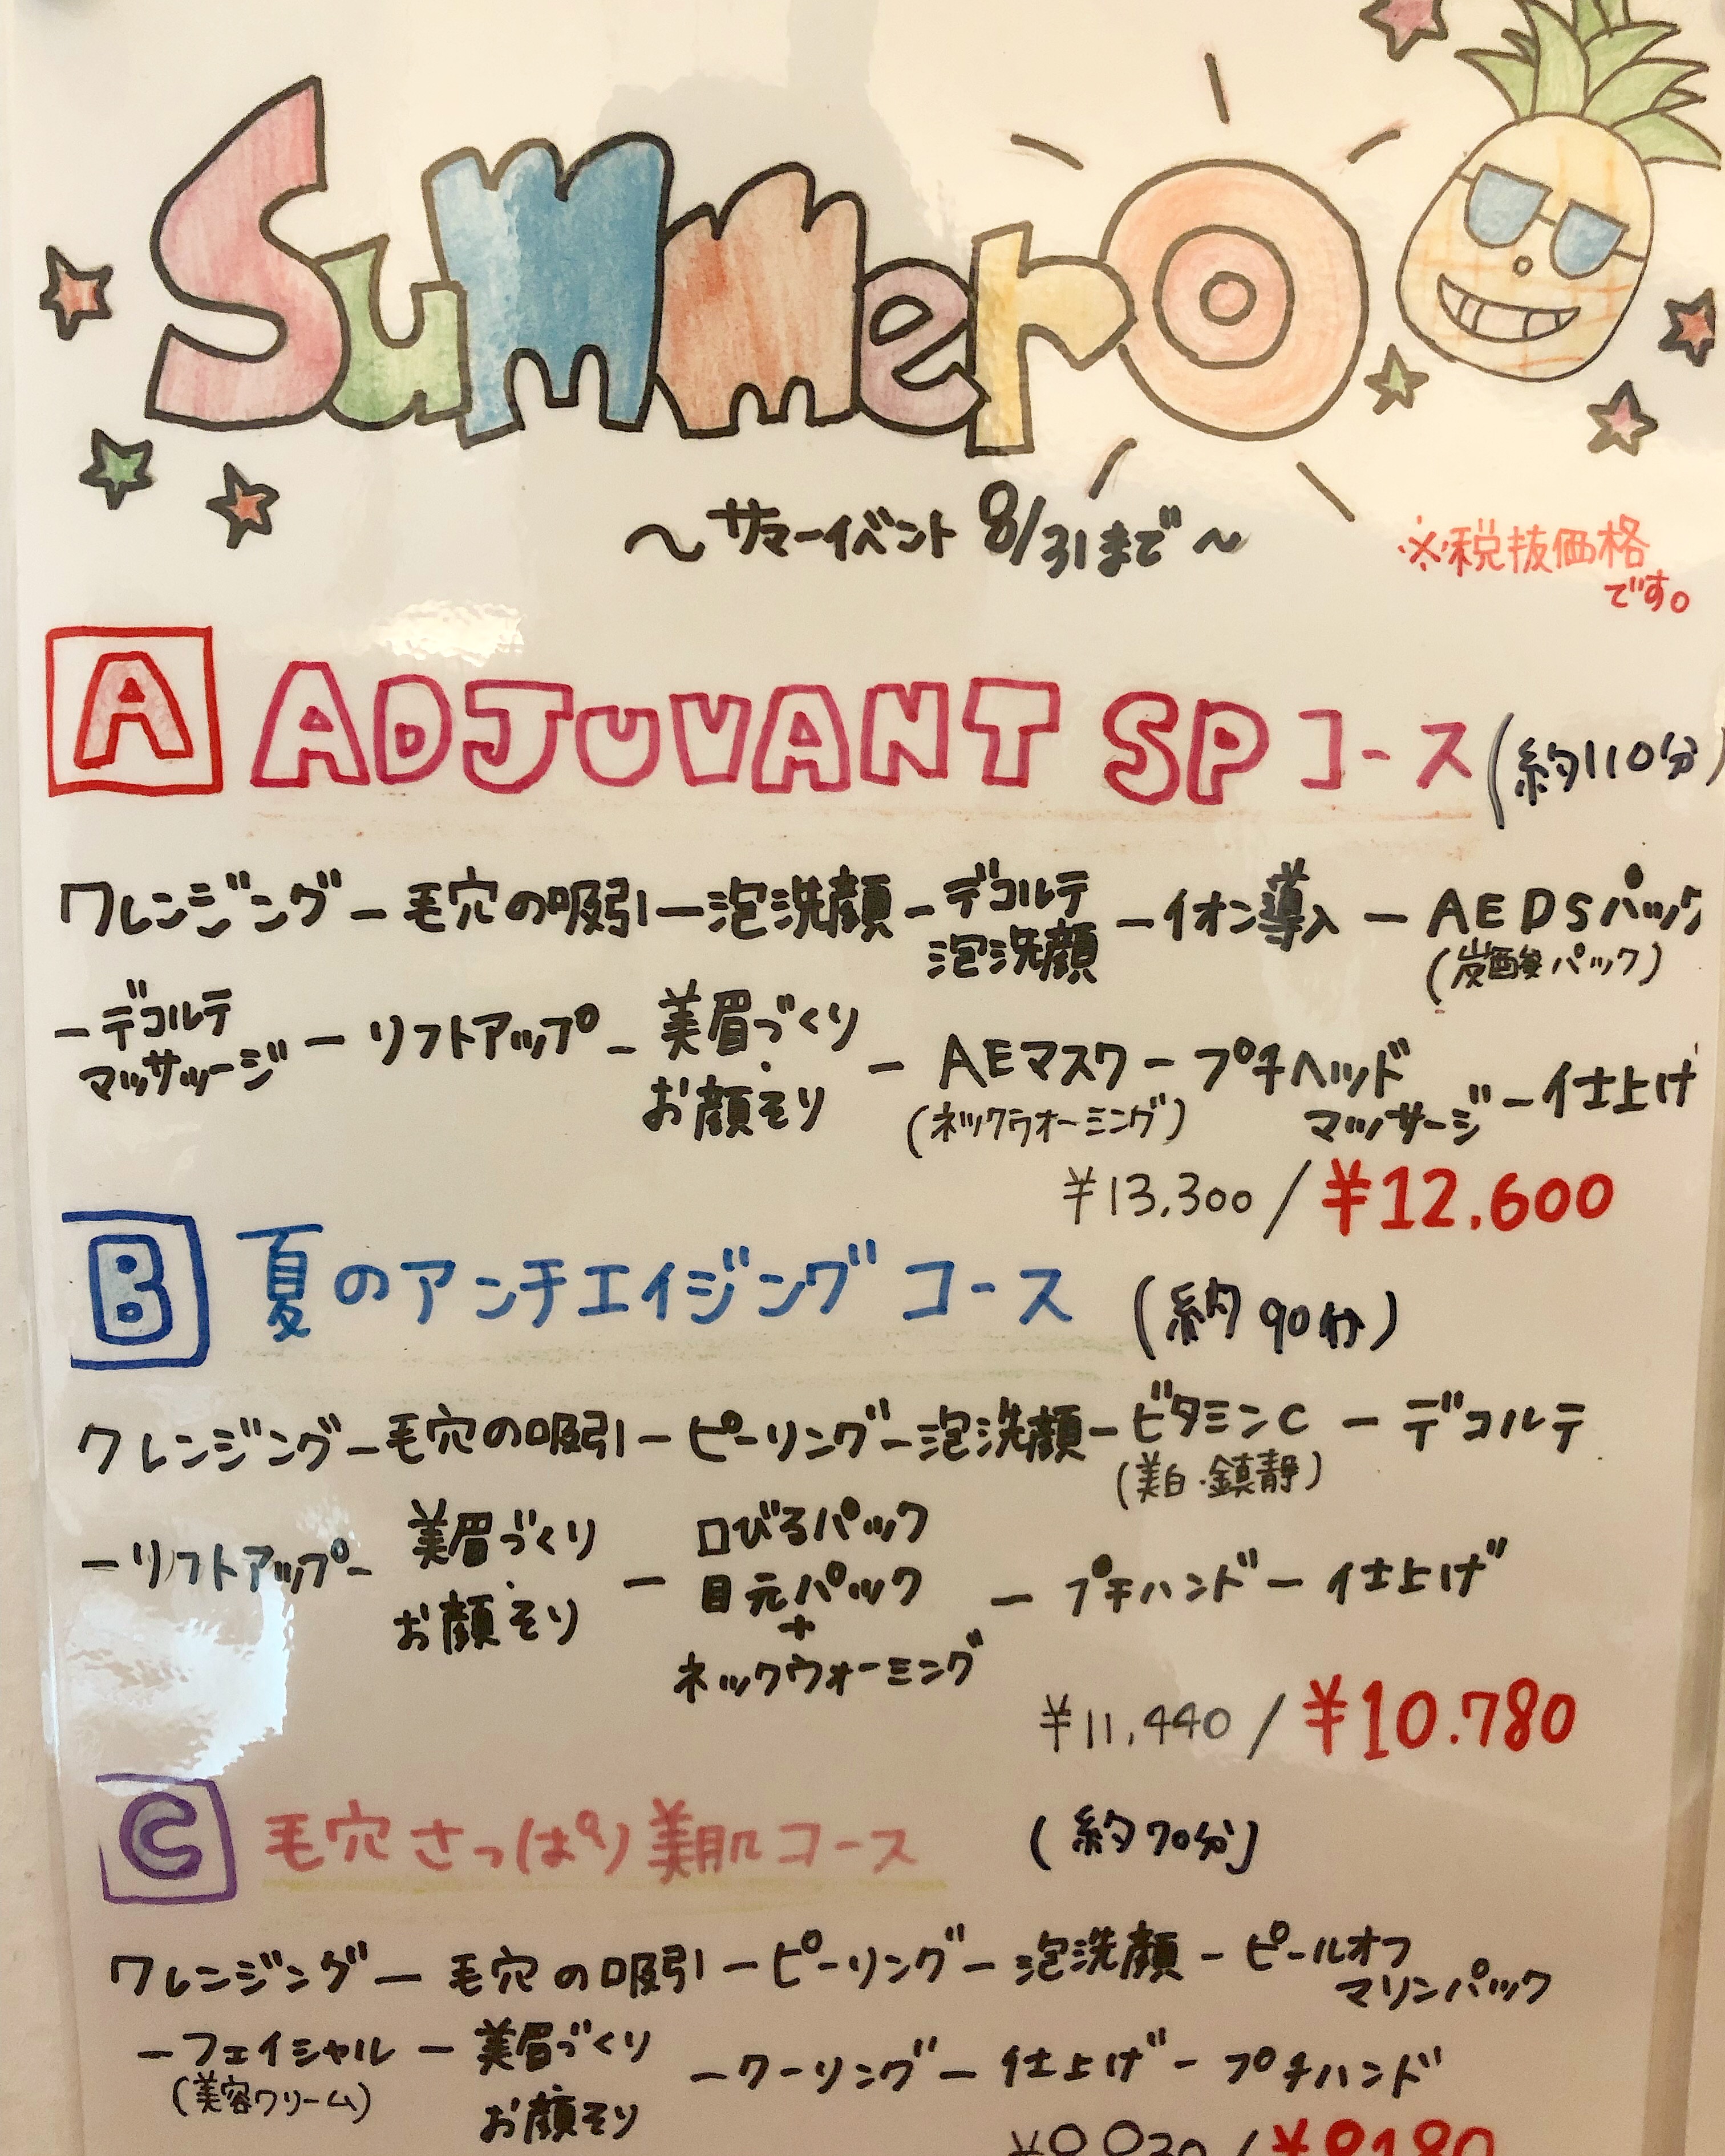 Summer
～サマーイベント 8/31まで～
※税抜価格
です。
A ADJUVANT SPコース (約110分)
クレンジング－毛穴の吸引－泡洗顔－デコルテ－イオン導入－AEDSパック
泡洗顔
(炭酸パック)
－デコルテ－リフトアップ－美眉づくり－AEマスク－プチヘッド－仕上げ
マッサージ
・お顔そり
(ネックウォーミング)
マッサージ
¥13,300 / ¥12.600
B 夏のアンチエイジングコース (約90分)
クレンジング－毛穴の吸引－ピーリング－泡洗顔－ビタミンC－デコルテ
(美白・鎮静)
－リフトアップ－美眉づくり－口びるパック－プチハンド－仕上げ
・お顔そり
目元パック
+
ネックウォーミング
¥11,440 / ¥10.780
C 毛穴さっぱり美肌コース (約70分)
クレンジング－毛穴の吸引－ピーリング－泡洗顔－ピールオフ
マリンパック
－フェイシャル－美眉づくり－クーリング－仕上げ－プチハンド
(美容クリーム)
お顔そり